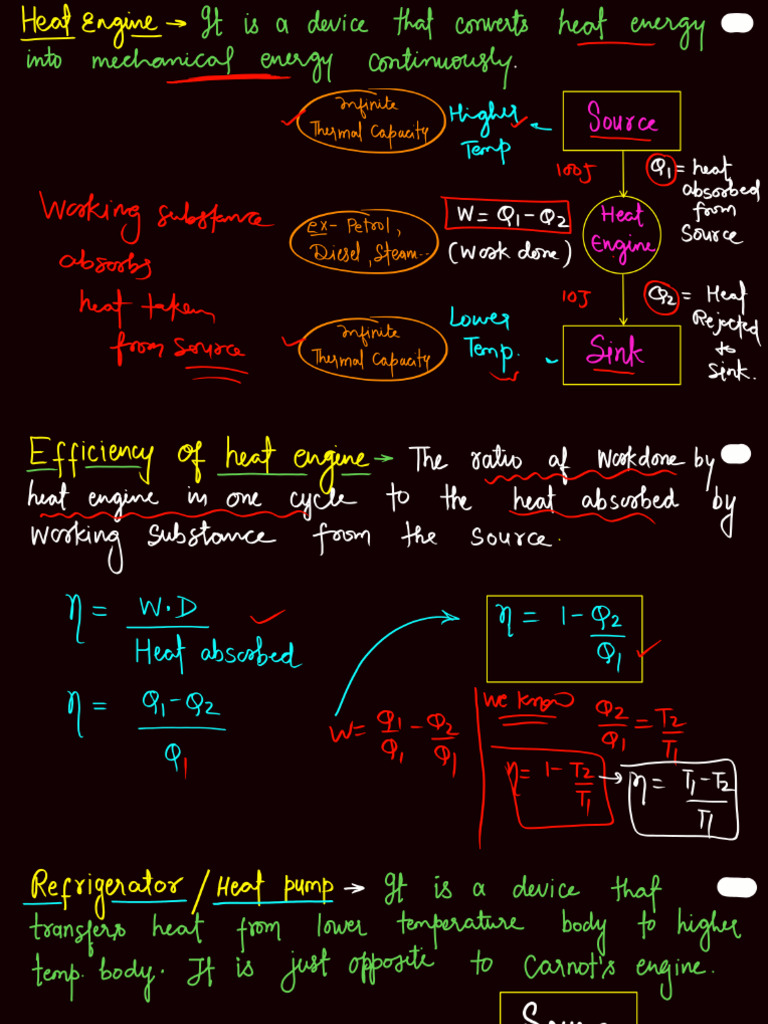 Heat Engine → It is a device that converts heat energy
into mechanical energy continuously.
Infinite
Thermal Capacity
Higher
Temp
Source
100J
Q1 = heat
absorbed
from
Source
Working substance
absorbs
heat taken
from source
ex- Petrol,
Diesel, Steam--
W = Q1 - Q2
(Work done)
Heat
Engine
10J
Q2 = Heat
Rejected
to
Sink.
Infinite
Thermal Capacity
Lower
Temp.
Sink
Efficiency of heat engine → The ratio of Workdone by
heat engine in one cycle to the heat absorbed by
working substance from the source.
η = W.D / Heat absorbed
η = Q1 - Q2 / Q1
η = 1 - Q2/Q1
W = Q1/Q1 - Q2/Q1
We know
Q2/Q1 = T2/T1
η = 1 - T2/T1 → η = T1 - T2 / T1
Refrigerator / Heat pump → It is a device that
transfers heat from lower temperature body to higher
temp. body. It is just opposite to Carnot's engine.